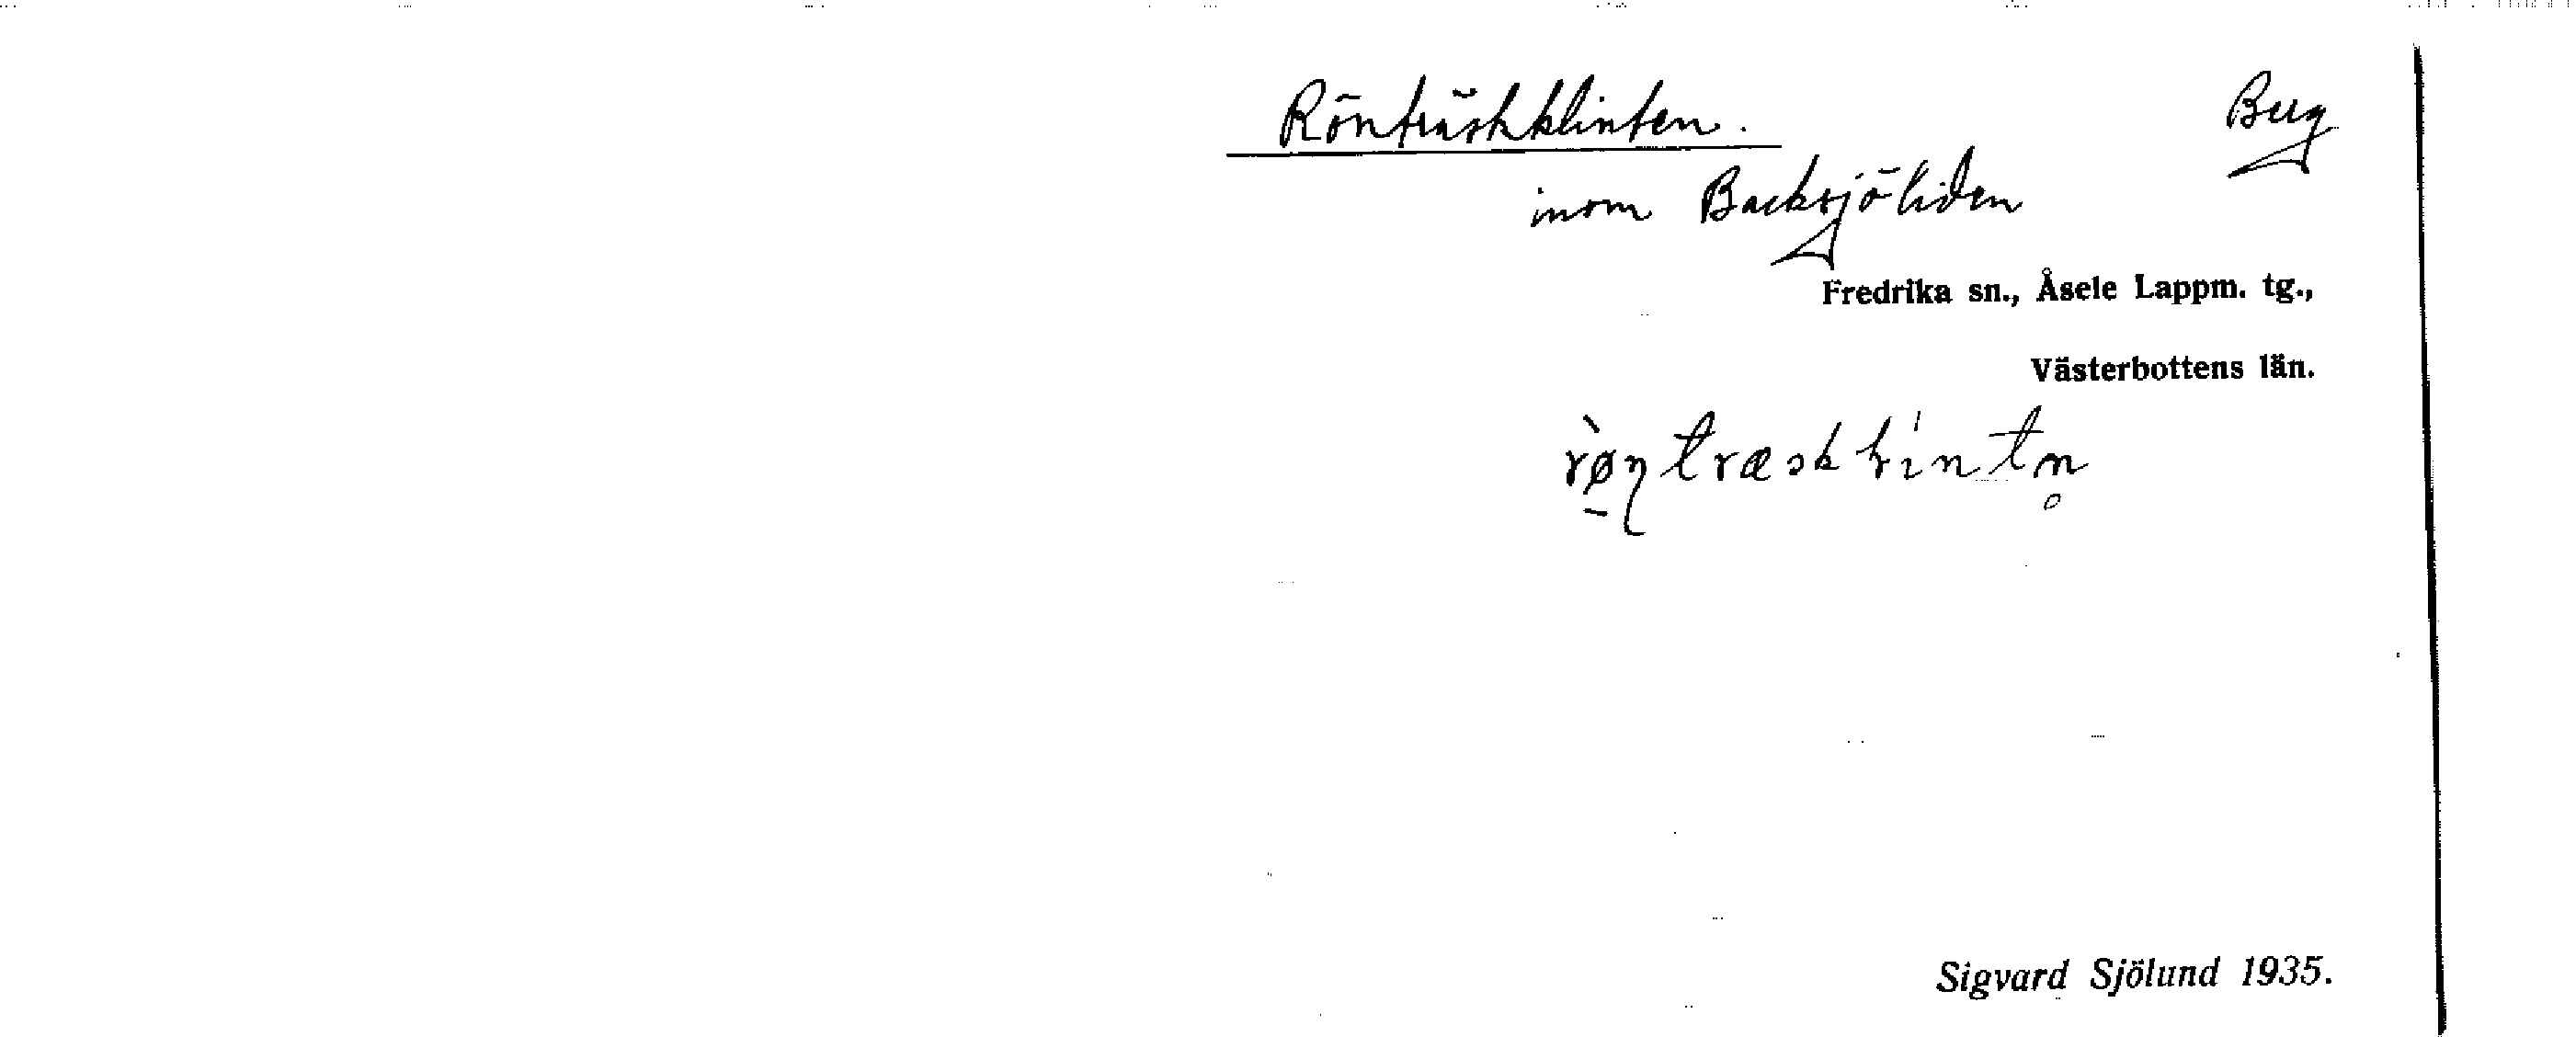 Rönträskklinten. Berg
inom Backsjöliden
Fredrika sn., Åsele Lappm. tg.,
Västerbottens län.
Sigvard Sjölund 1935.